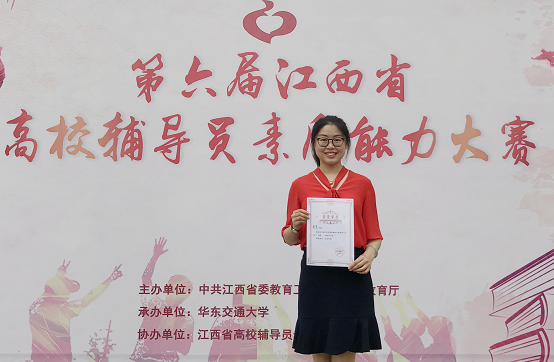 第六届江西省
高校辅导员素质能力大赛
主办单位：中共江西省委教育工 育厅
承办单位：华东交通大学
协办单位：江西省高校辅导员